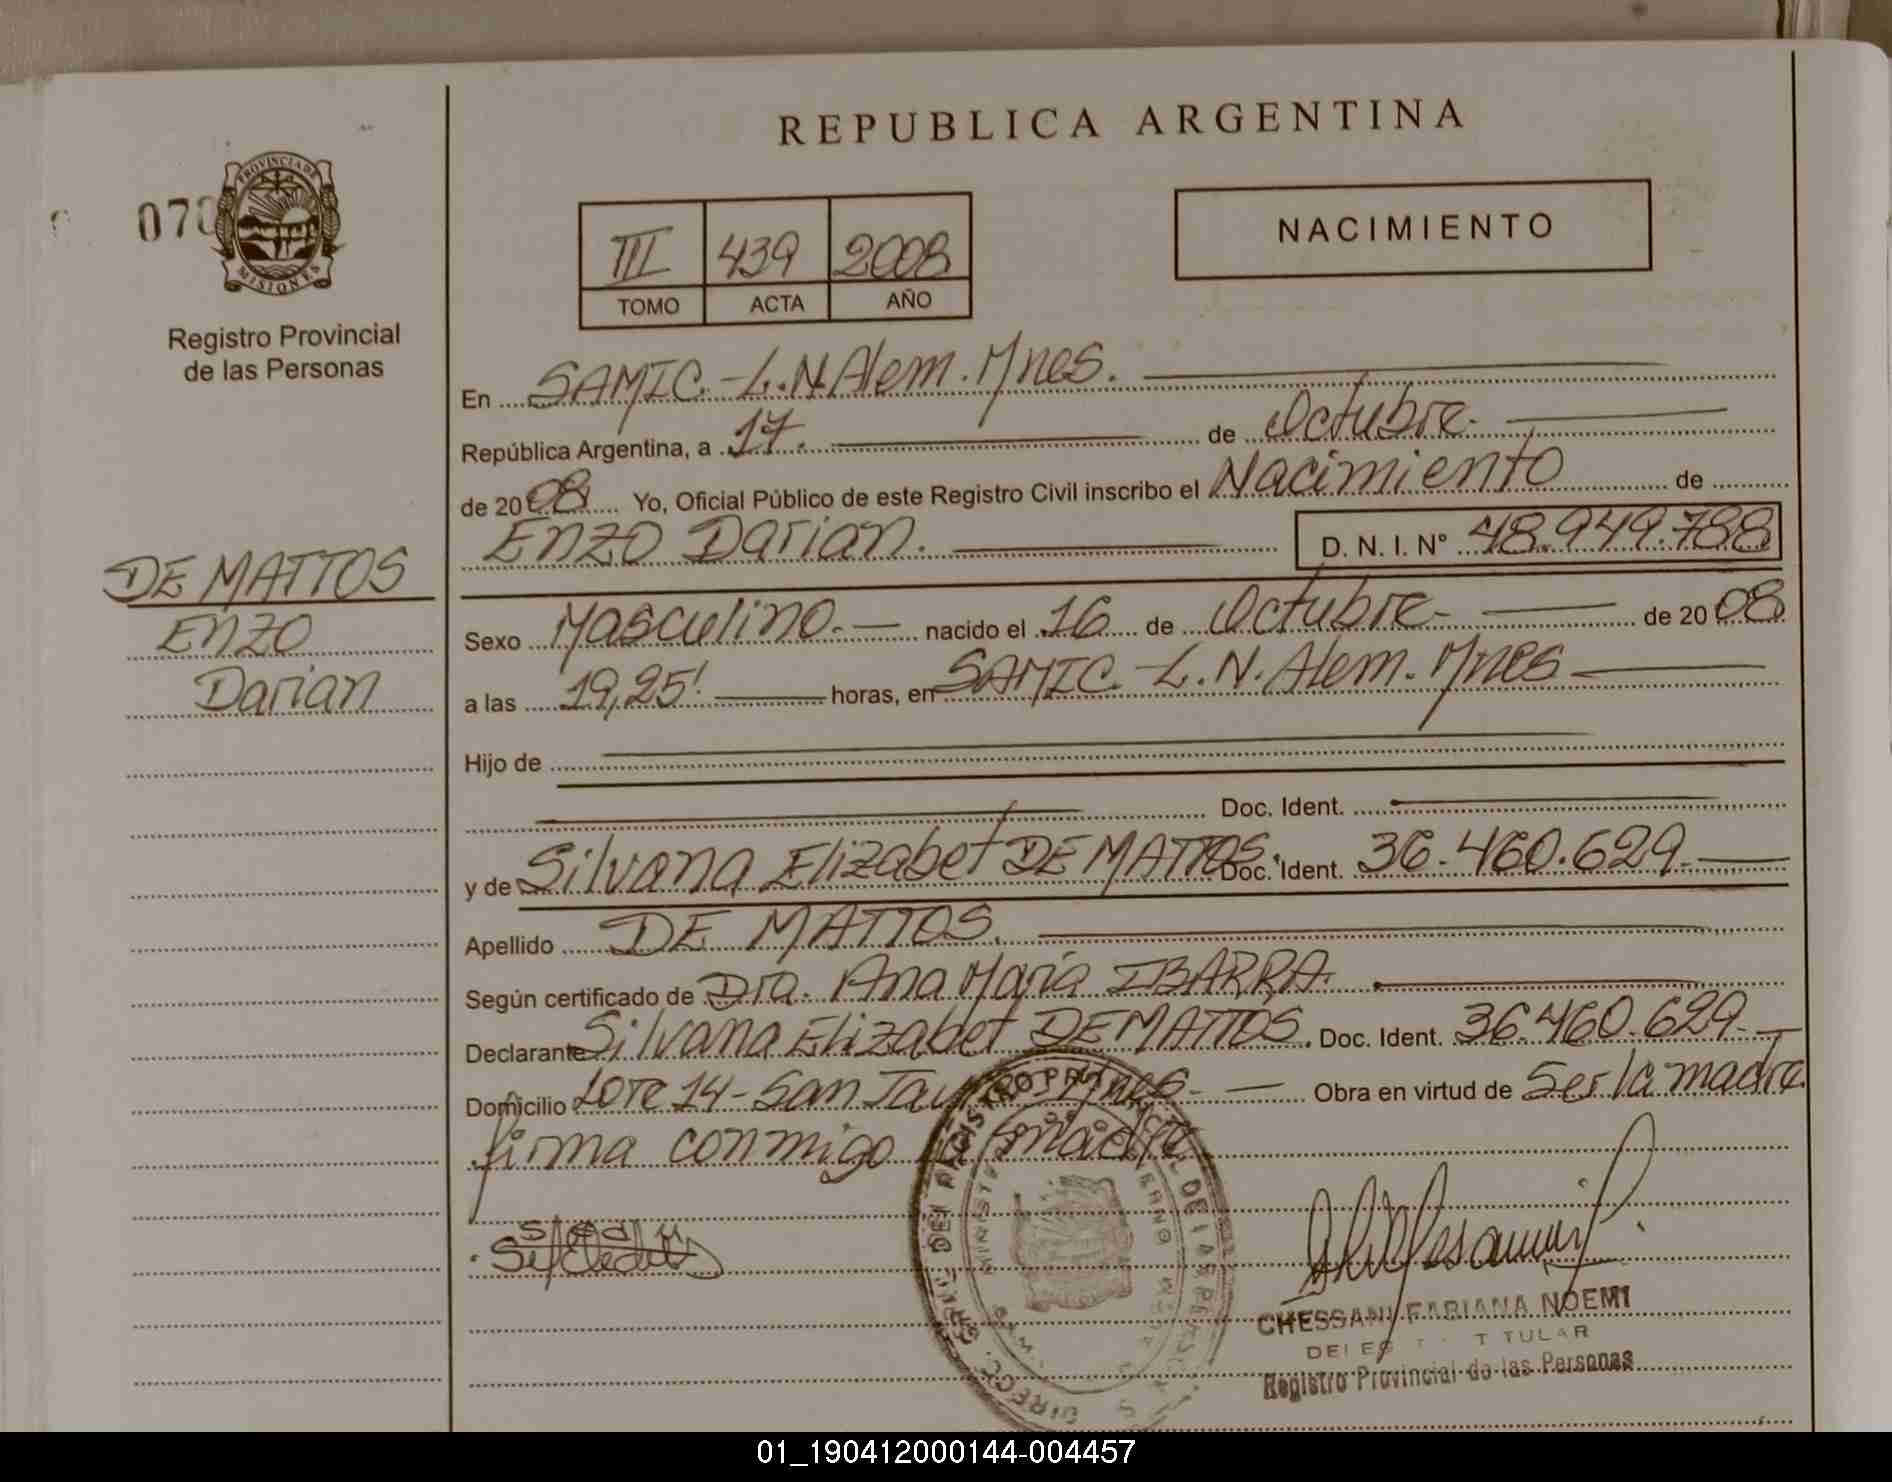 REPUBLICA ARGENTINA
070
PROVINCIA DE
MISIONES
Registro Provincial
de las Personas
III 439 2008
TOMO ACTA AÑO
NACIMIENTO
En SAMIC.-L.N.Alem.Mnes.
República Argentina, a 17. de Octubre.
de 2008 Yo, Oficial Público de este Registro Civil inscribo el Nacimiento de
Enzo Darian. D. N. I. N° 48.949.788
DE MATTOS
Enzo
Darian
Sexo Masculino.- nacido el 16 de Octubre- de 2008
a las 19,25' horas, en SAMIC.-L.N.Alem.Mnes
Hijo de
Doc. Ident.
y de Silvana Elizabet DE MATTOS. Doc. Ident. 36.460.629.-
Apellido DE MATTOS.
Según certificado de Dra. Ana Maria IBARRA.
Declarante Silvana Elizabet DE MATTOS. Doc. Ident. 36.460.629.-
Domicilio Lote 14-San Mnes.- Obra en virtud de Ser la madre
firma conmigo madre
CHESSANI FABIANA NOEMI
TITULAR
Registro Provincial de las Personas
01_190412000144-004457